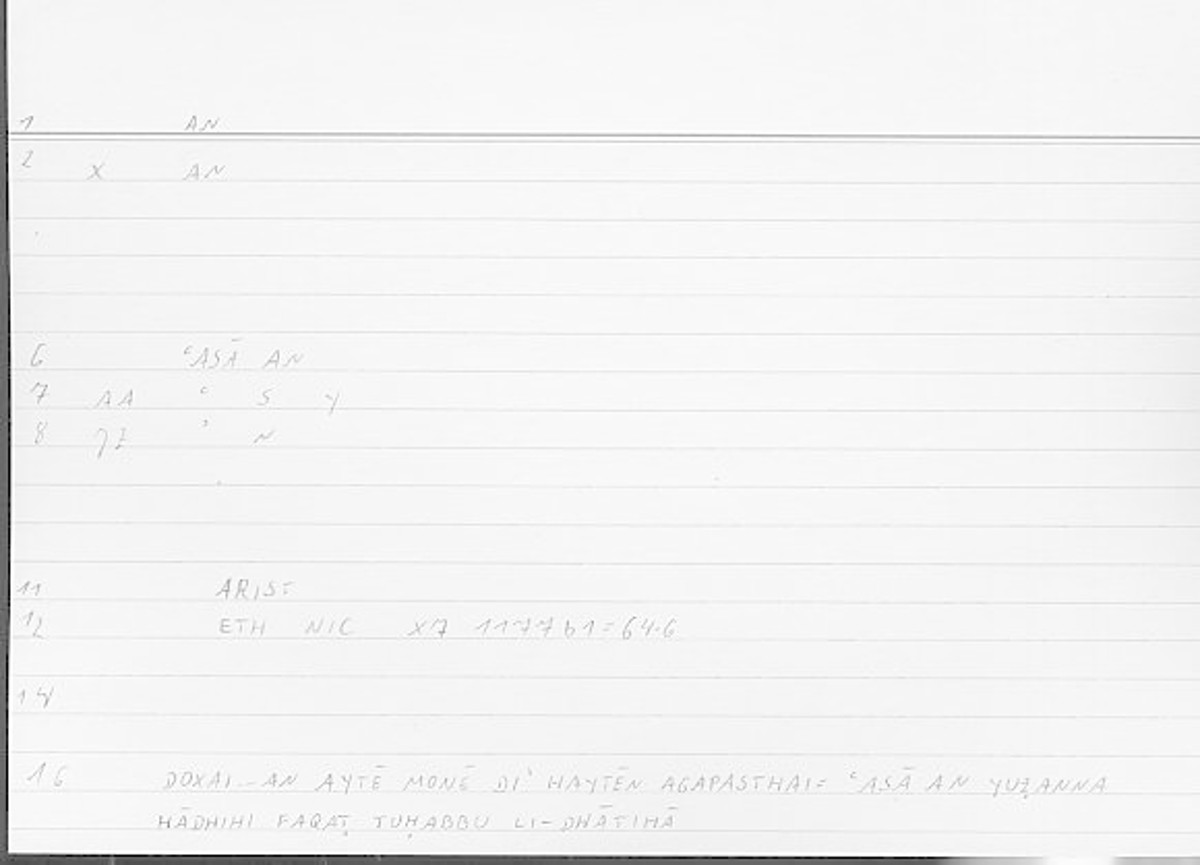 1 AN
2 X AN
6 ʿASĀ AN
7 AA ʿ S Y
8 ʾ N
11 ARIST
12 ETH NIC X7 1177b1=64.6
14
16 DOXAI–AN AYTĒ MONĒ DI' HAYTĒN AGAPASTHAI= ʿASĀ AN YUẒANNA
HĀDHIHI FAQAṬ TUḤABBU LI-DHĀTIHĀ